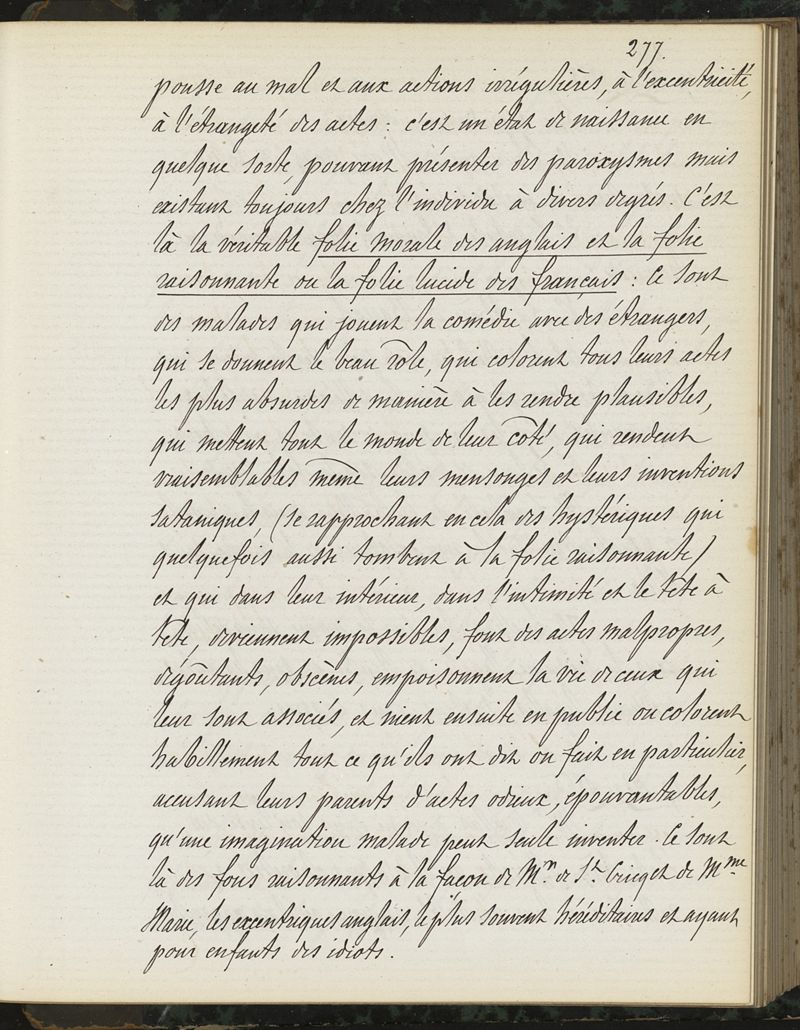 277.
pousse au mal et aux actions irrégulières, à l'excentricité,
à l'étrangeté des actes : c'est un état de naissance en
quelque sorte, pouvant présenter des paroxysmes mais
existant toujours chez l'individu à divers degrés. C'est
là la véritable folie morale des anglais et la folie
raisonnante ou la folie lucide des français : Ce sont
des malades qui jouent la comédie avec des étrangers,
qui se donnent le beau rôle, qui colorent tous leurs actes
les plus absurdes de manière à les rendre plausibles,
qui mettent tout le monde de leur côté, qui rendent
vraisemblables même leurs mensonges et leurs inventions
sataniques, (se rapprochant en cela des hystériques qui
quelquefois aussi tombent à la folie raisonnante)
et qui dans leur intérieur, dans l'intimité et le tête à
tête, deviennent impossibles, font des actes malpropres,
dégoûtants, obscènes, empoisonnent la vie de ceux qui
leur sont associés, et nient ensuite en public ou colorent
habillement tout ce qu'ils ont dit ou fait en particulier,
accusant leurs parents d'actes odieux, épouvantables,
qu'une imagination malade peut seule inventer. Ce sont
là des fous raisonnants à la façon de Mr. de St. et de Mme.
Marie, les excentriques anglais, le plus souvent héréditaires et ayant
pour enfants des idiots.